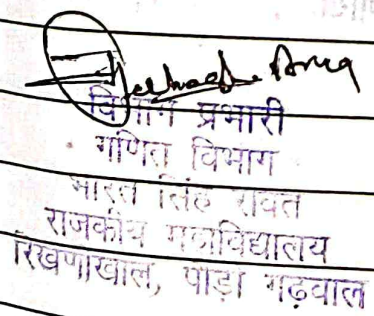 विभाग प्रभारी
गणित विभाग
भारत सिंह रावत
राजकीय महाविद्यालय
रिखणाखाल, पौड़ी गढ़वाल